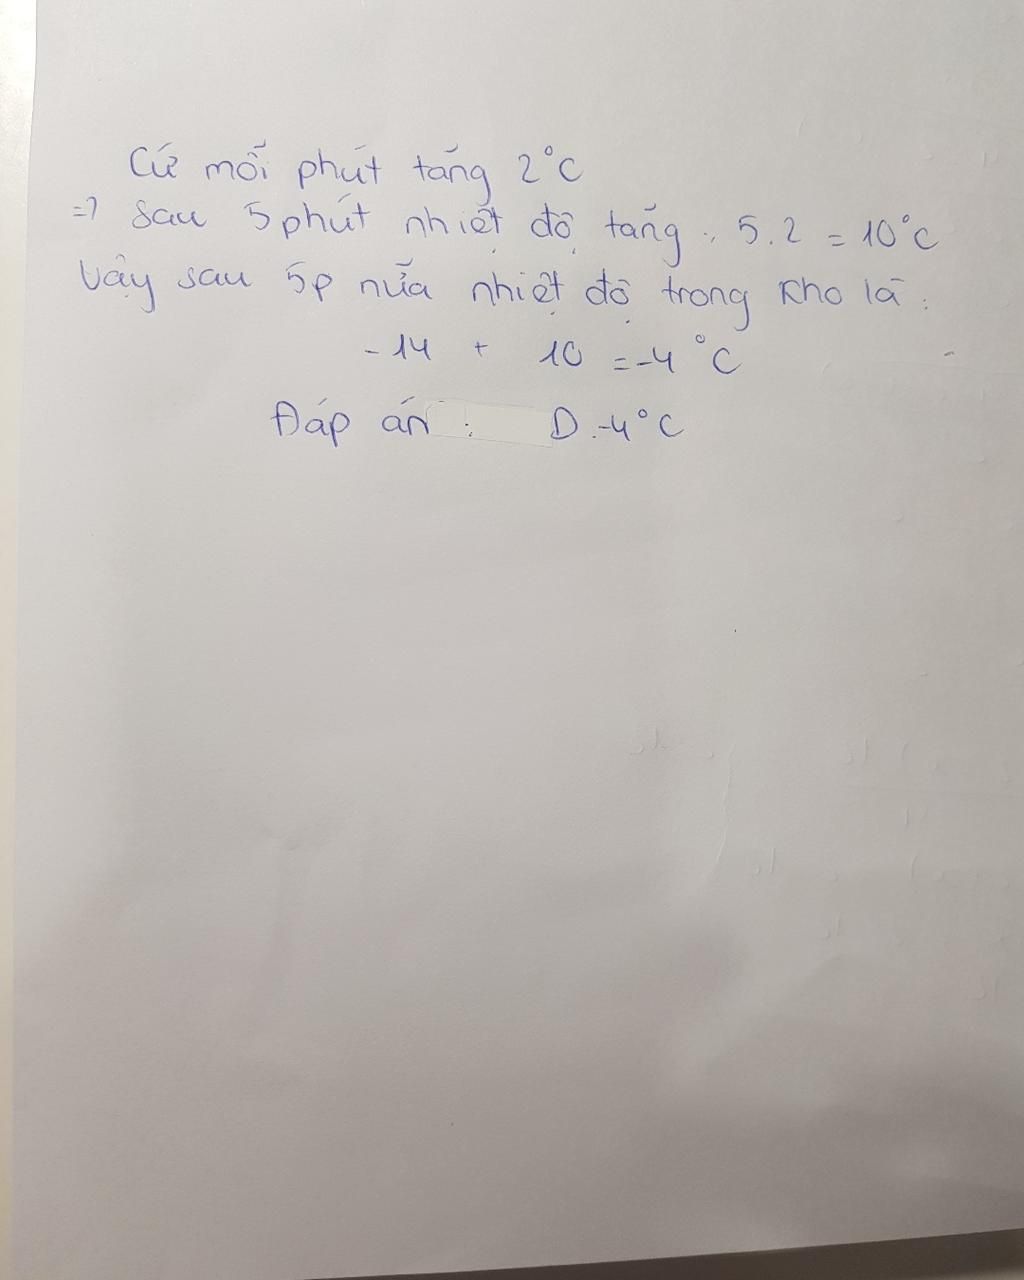 Cứ mỗi phút tăng 2°C
=> sau 5 phút nhiệt độ tăng : 5.2 = 10°C
Vậy sau 5p nữa nhiệt độ trong kho là :
-14 + 10 = -4 °C
Đáp án : D. -4°C